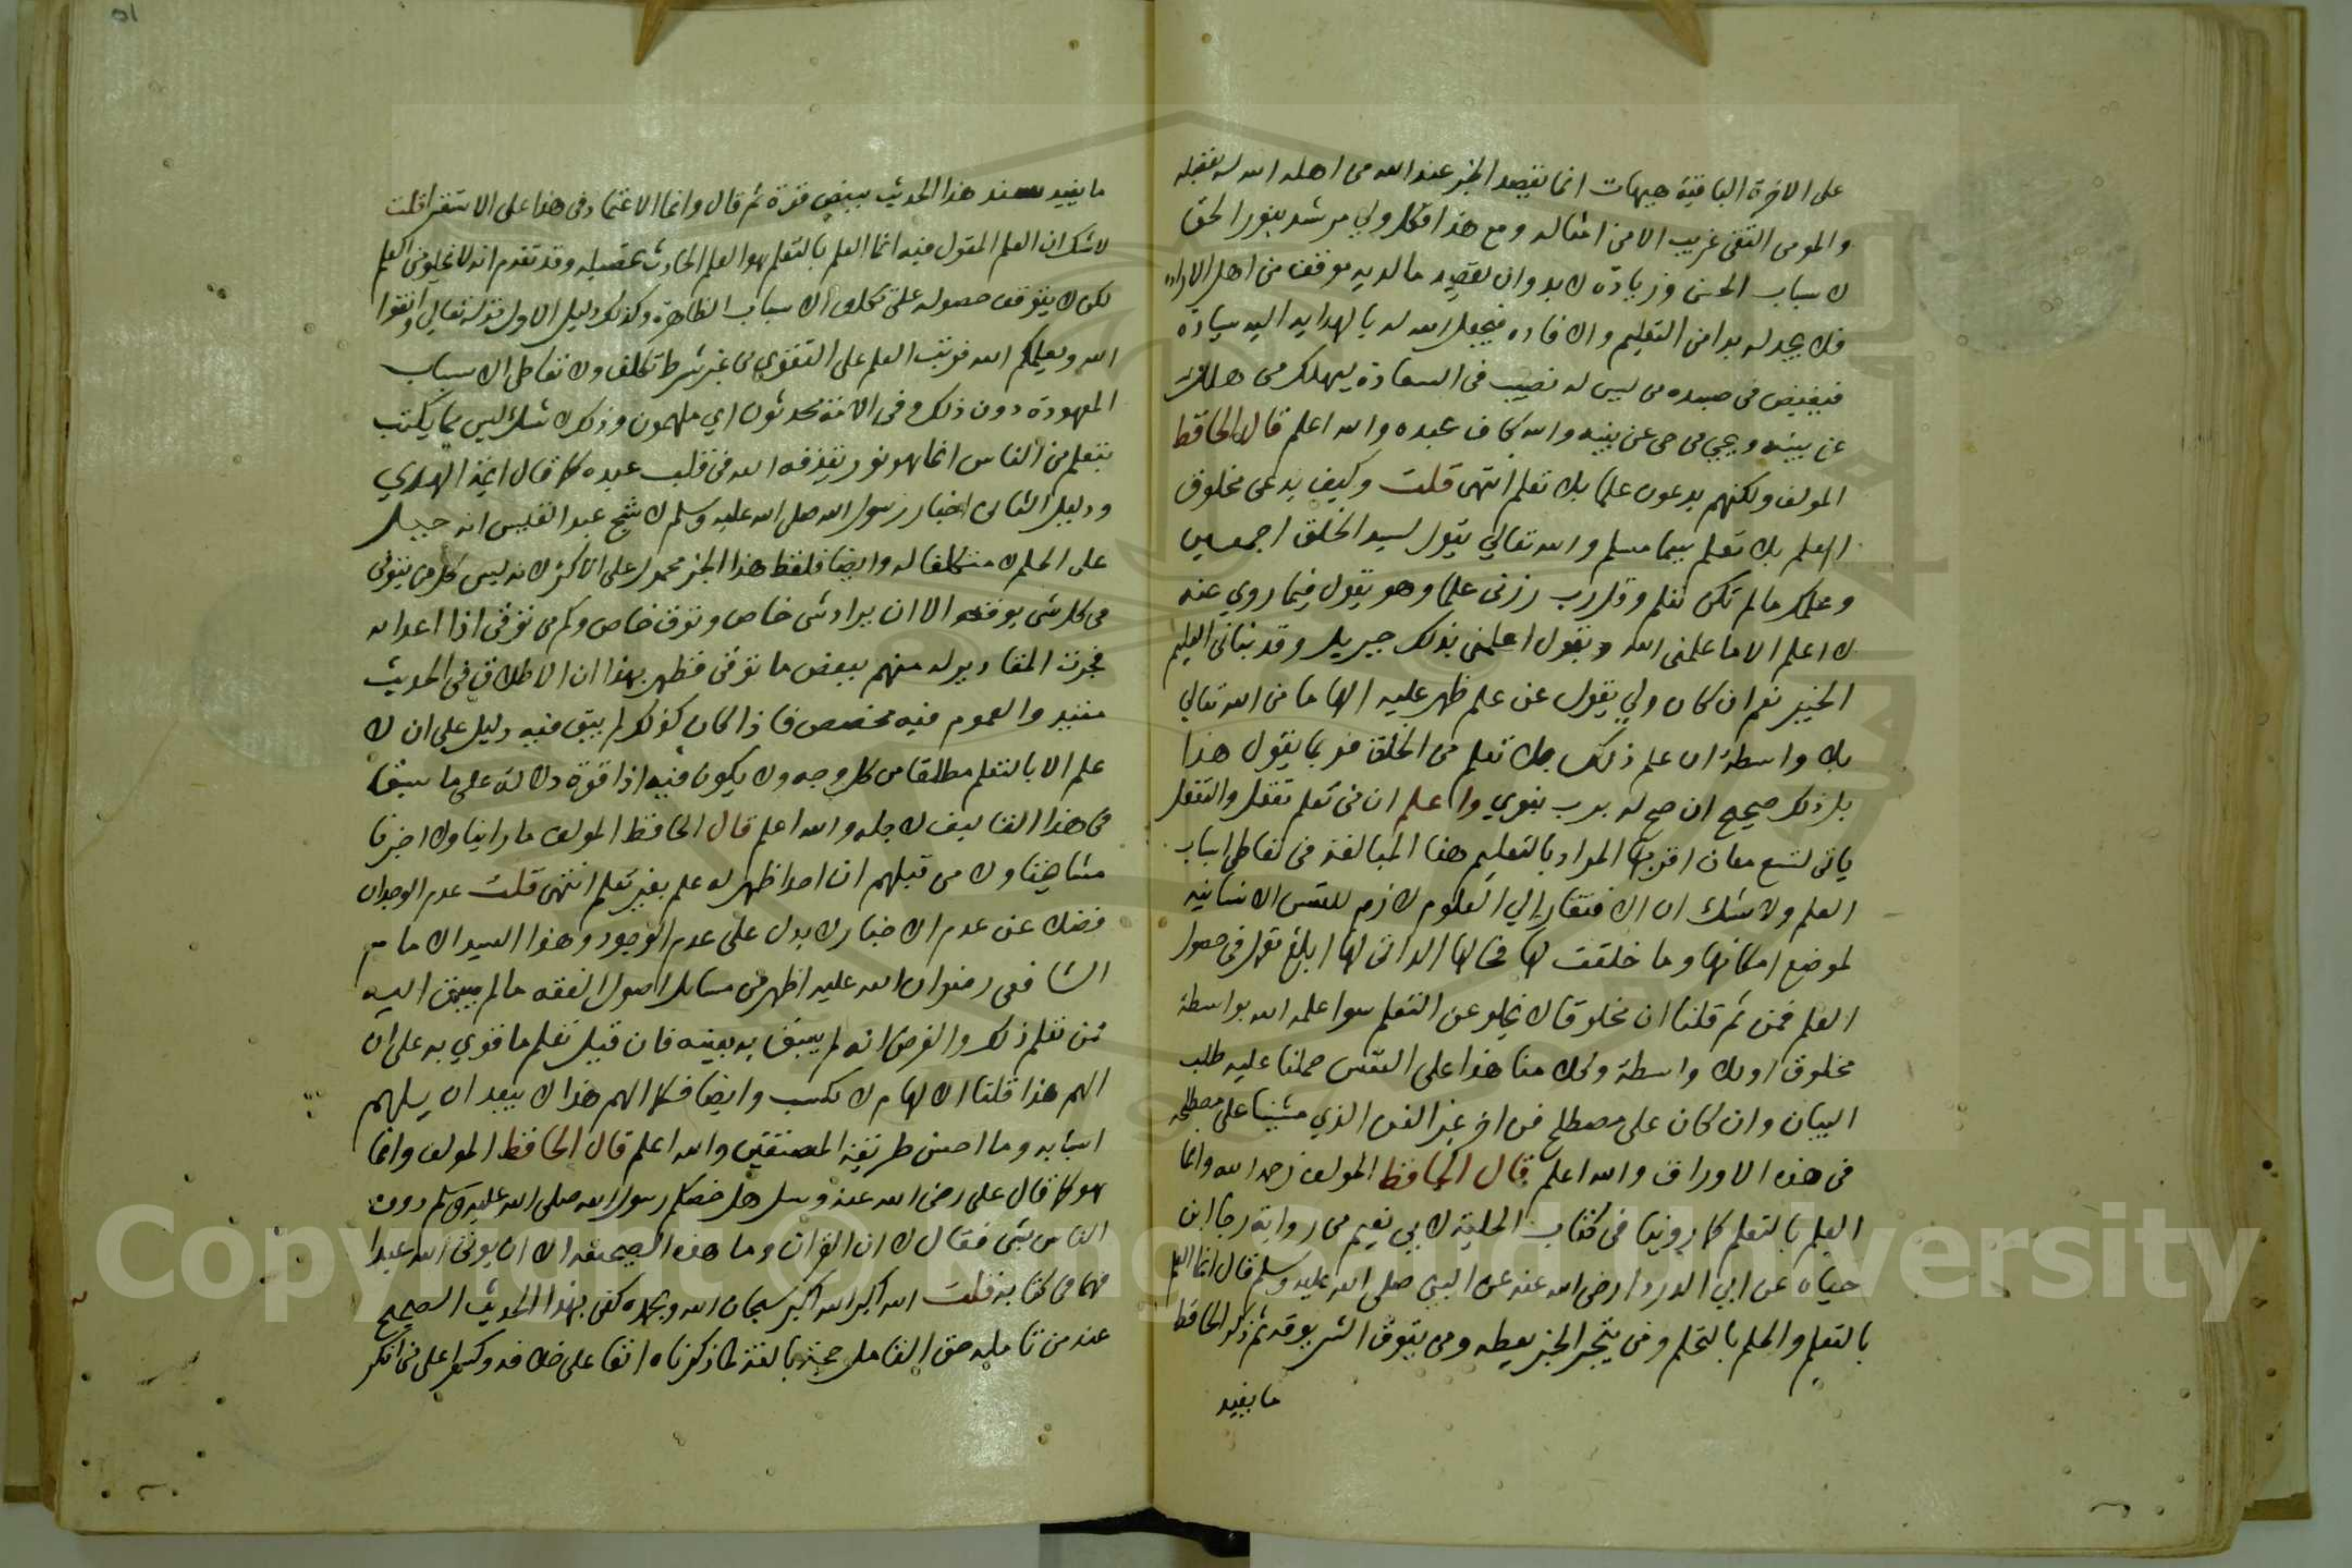 على الاخرة الباقية هيهات انما يقصد الخير عند الله من اهله الله له بفضله
والمومن التقى غريب الا من امثاله ومع هذا فكل ولي مرشد بنور الحق
لاسباب الحسنى وزيادة لا بد وان يقصد ما لديه موفق من اهل الاراده
فلا يجد له بدا من التعليم والافاده فيجعل الله له بالهدايه اليه سيادة
فيفيض في صيده من ليس له نصيب في السعادة ليهلك من هلك
عن بينه ويحيى من حى عن بينه والله كاف عبده والله اعلم قال الحافظ
المولف ولكنهم يدعون علما بلا تعلم انتهى قلت وكيف يدعى مخلوق
العلم بلا تعلم سيما مسلم والله تعالي يقول لسيد الخلق اجمعين
وعلمك ما لم تكن تعلم وقل رب زدنى علما وهو يقول فيما روي عنه
لا اعلم الا ما علمنى الله ويقول اعلمنى بذلك جبريل وقد نبانى العليم
الخبير نعم ان كان ولي يقول عن علم ظهر عليه الهاما من الله تعالي
بلا واسطة ان علم ذلك بلا تعلم من الخلق فربما يقول هذا
بل ذلك صحيح ان صح له برب بنوي واعلم ان فى تعلم تفعل والتفعل
ياتى لتسع معان اقربها المراد بالتعليم هنا المبالغة فى تعاطي اسباب
العلم ولا شك ان الافتقار الي العلوم لازم للنفس الانسانيه
لموضع امكانها وما خلقت لها فحالها الذاتى لها ابلغ تعمل في حصول
العلم فمن ثم قلنا ان مخلوقا لا يخلو عن التعلم سوا علمه الله بواسطة
مخلوق او بلا واسطة وكلامنا هذا على النفس حملنا عليه طلب
البيان وان كان على مصطلح فن اخر غير الفن الذي مشينا على مصطلحه
فى هذه الاوراق والله اعلم قال الحافظ المولف رحمه الله وانما
العلم بالتعلم كما روينا فى كتاب الحلية لابي نعيم من رواية رجا ابن
حياة عن ابي الدردا رضى الله عنه عن النبى صلى الله عليه وسلم قال انما العلم
بالتعلم والحلم بالتحلم ومن يتحر الخير يعطه ومن يتوق الشر يوقه ثم ذكر الحافظ
ما يفيد
ما يفيد سند هذا الحديث ببعض قوة ثم قال وانما الاعتماد فى هذا على الاستقرا قلت
لا شك ان العلم المقول فيه انما العلم بالتعلم هو العلم الحادث تحصيله وقد تقدم انه لا يخلو من العلم
لكن لا يتوقف حصوله على تكلف الاسباب الظاهرة وكذلك دليل الاول قوله تعالي واتقوا
الله ويعلمكم الله فرتب العلم على التقوي من غير شرط تكلف ولا تعاطى الاسباب
المعهودة دون ذلك وفى الامة محدثون اي ملهمون وذلك لا شك ليس مما يكتب
بتعلم من الناس انما هو نور يقذفه الله فى قلب عبده كما قال ايمة الهدي
ودليل الثانى اخبار رسول الله صلى الله عليه وسلم لا شج عبد القيس انه جبل
على الحلم لا متكلفا له وايضا فلفظ هذا الخبر محمول على الاكثر لانه ليس كل من يتوقى
من كل شى يوقه الا ان يراد شى خاص وتوق خاص وكم من توقى اذا اعدا له
فجرت المقادير له منهم ببعض ما توقى فظهر بهذا ان الاطلاق فى الحديث
مقيد والعموم فيه مخصص فاذا كان كذلك لم يبق فيه دليل على ان لا
علم الا بالتعلم مطلقا من كل وجه ولا يكون فيه اذا قوة دلالة على ما سبق
فى هذا التاليف لاجله والله اعلم قال الحافظ المولف ما راينا ولا اخبرنا
مشايخنا ولا من قبلهم ان احدا ظهر له علم بغير تعلم انتهى قلت عدم الوجدان
فضلا عن عدم الاخبار لا يدل على عدم الوجود وهذا السيد الامام
الشافعى رضوان الله عليه اظهر من مسايل اصول الفقه ما لم يسبق اليه
فمن تعلم ذلك والفرض انه لم يسبق به بعينه فان قيل تعلم ما قوي به على ان
الهم هذا قلنا الالهام لا يكسب وايضا فكما الهم هذا لا يبعد ان يلهم
اسبابه وما احسن طريقة المصنفين والله اعلم قال الحافظ المولف وانما
هو كما قال على رضى الله عنه وسئل هل خصكم رسول الله صلى الله عليه وسلم دون
الناس بشى فقال لا ان القران وما هذه الصحيفه الا ان يوتى الله عبدا
فهما فى كتابه قلت الله اكبر الله اكبر سبحان الله وبحمده كفى بهذا الحديث الصحيح
عند من تامله حق التامل حجة بالغة لما ذكرناه اتفا على خلافه وكسرا على من انكر